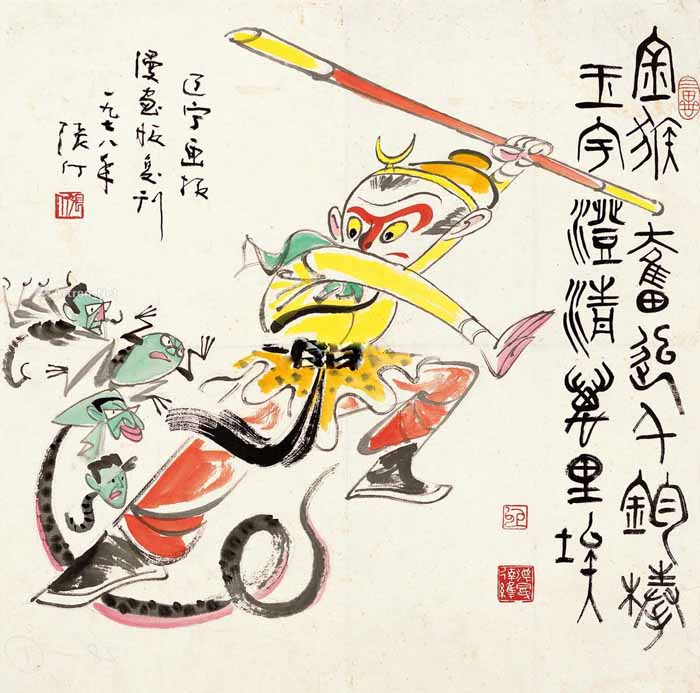 金猴奮起千鈞棒
玉宇澄清萬里埃
辽宁画报
漫画版复刊
一九七八年
张仃